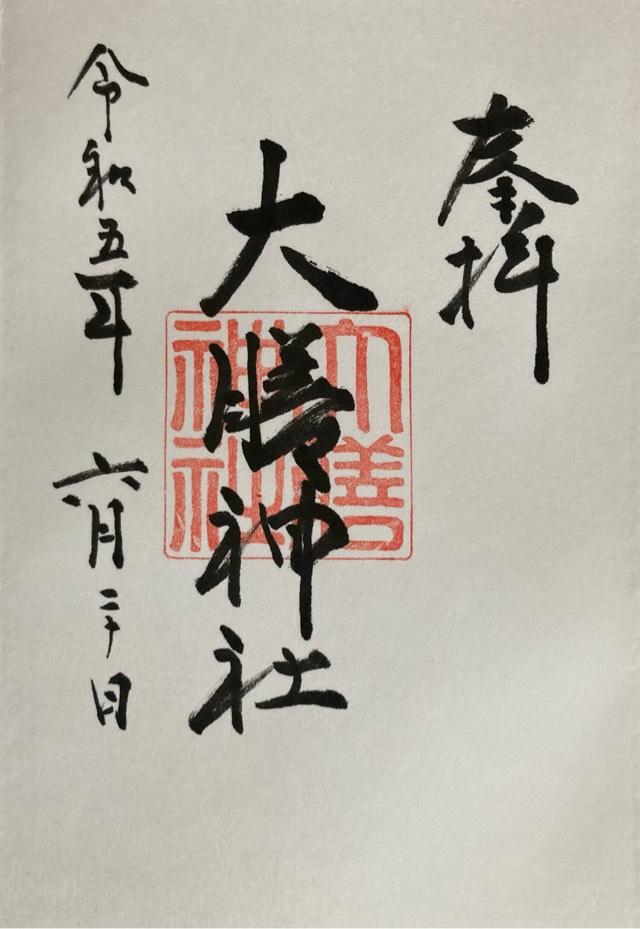 奉拝
大膳神社
大膳
神社
令和五年 六月二十日